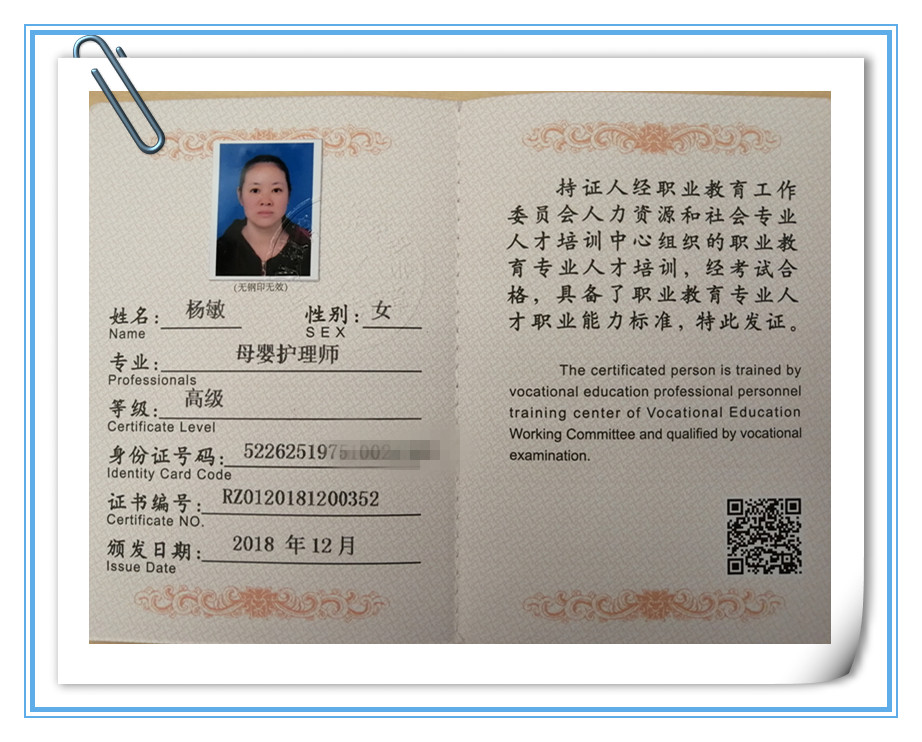 (无钢印无效)
姓名: 杨敏 性别: 女
Name SEX
专业: 母婴护理师
Professionals
等级: 高级
Certificate Level
身份证号码: 52262519
Identity Card Code
证书编号: RZ0120181200352
Certificate NO.
颁发日期: 2018 年 12 月
Issue Date
持证人经职业教育工作
委员会人力资源和社会专业
人才培训中心组织的职业教
育专业人才培训，经考试合
格，具备了职业教育专业人
才职业能力标准，特此发证。
The certificated person is trained by
vocational education professional personnel
training center of Vocational Education
Working Committee and qualified by vocational
examination.